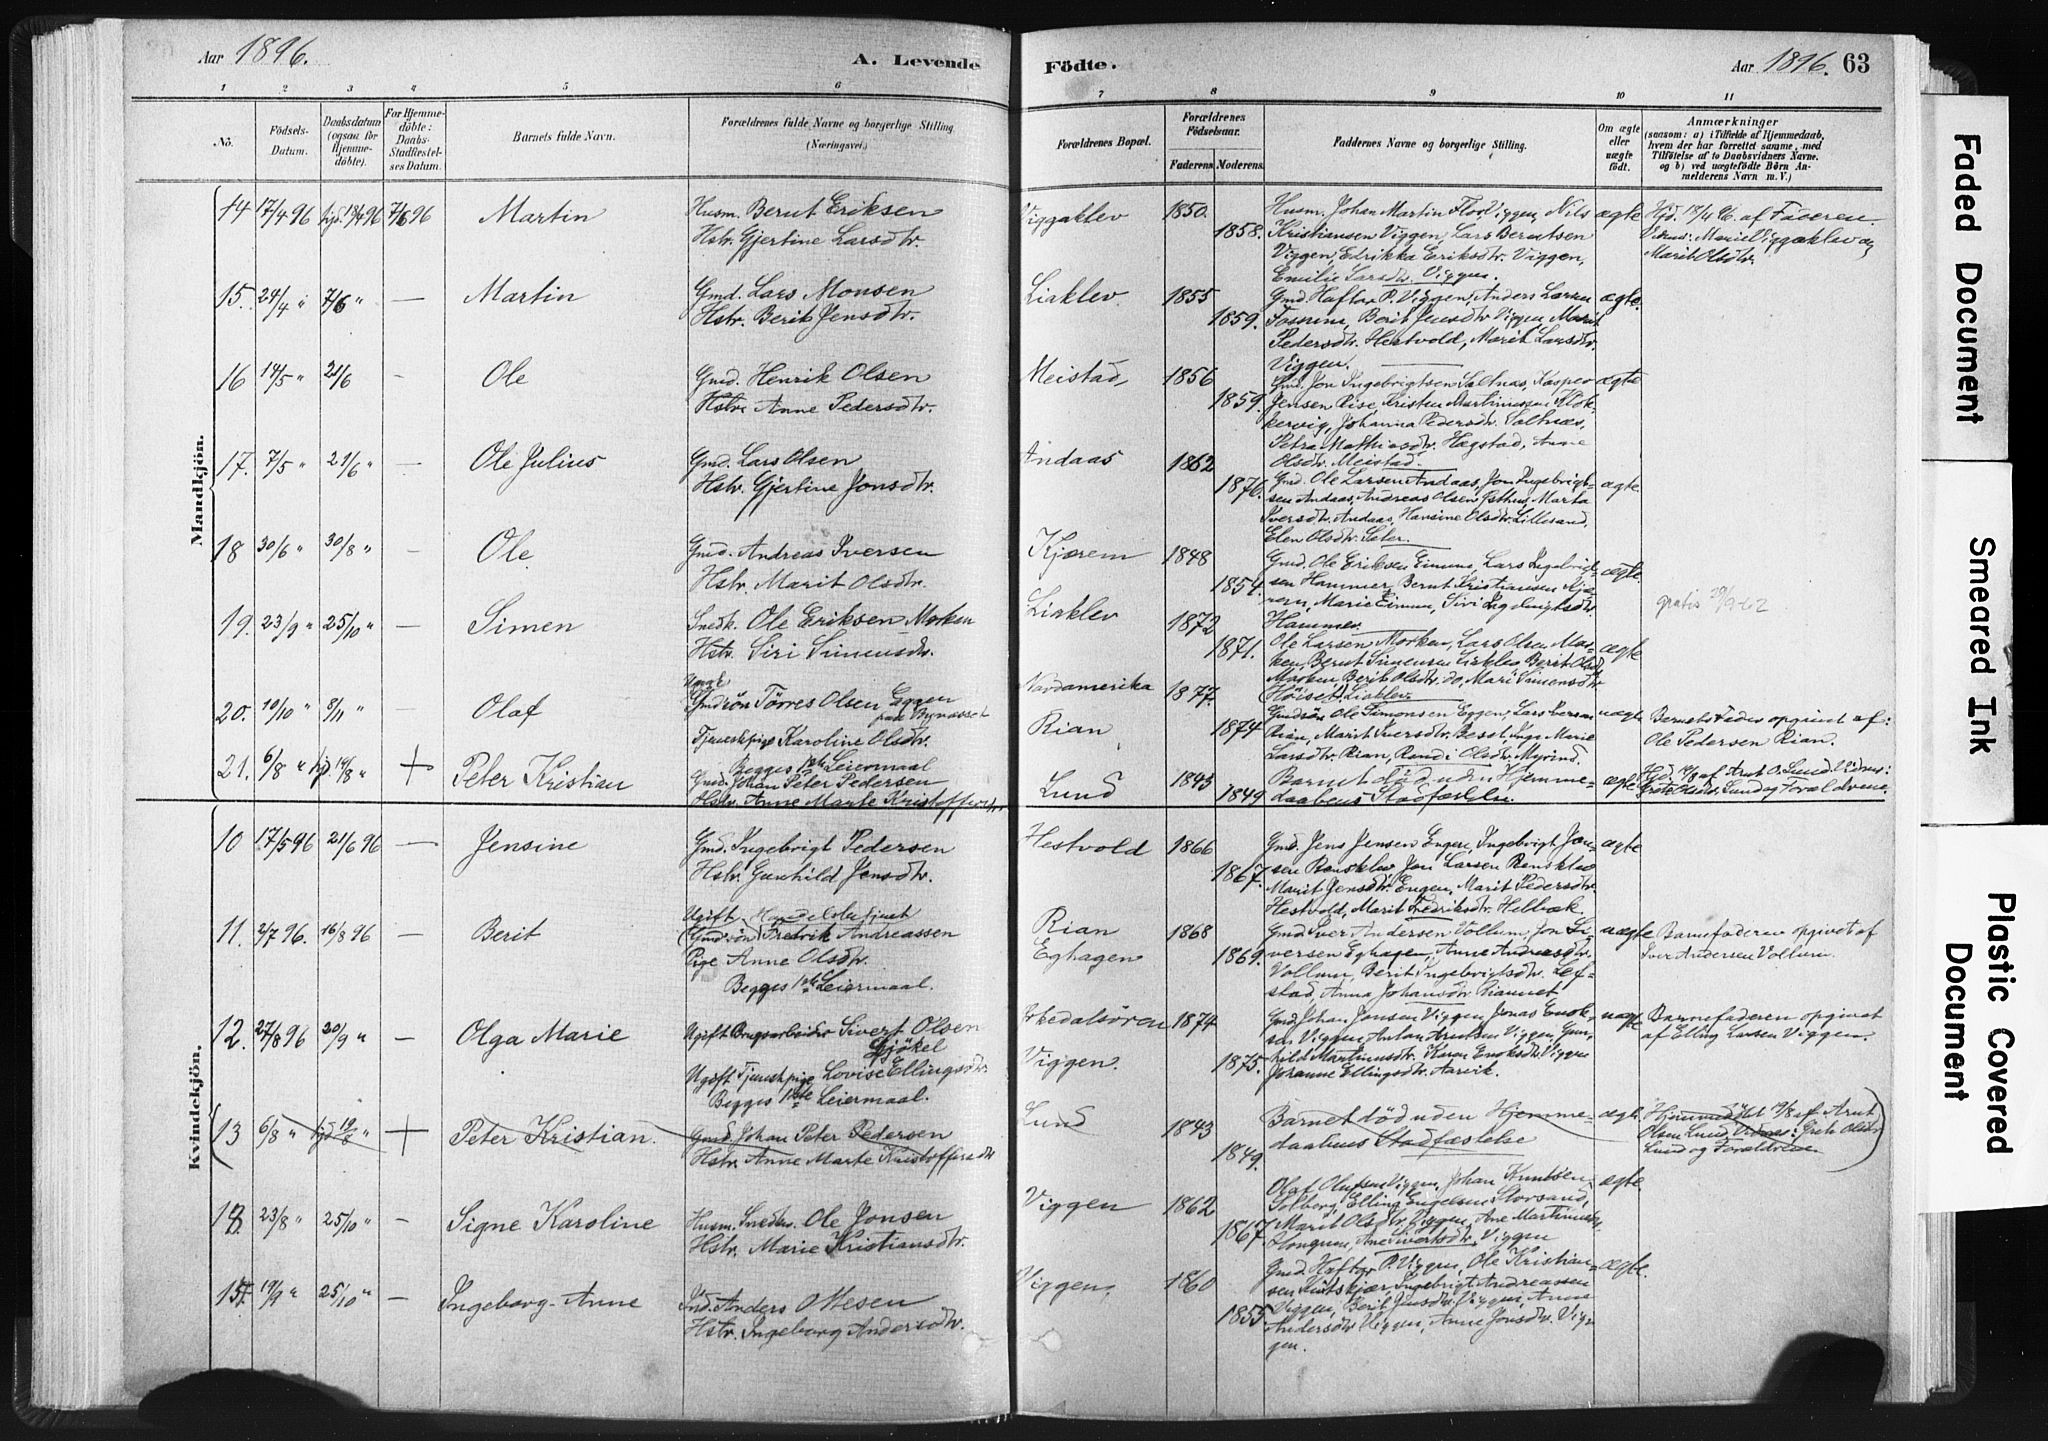 Aar 1896.
A. Levende
Födte.
Aar 1896. 63
1 2 3 4 5 6 7 8 9 10 11
No.
Födsels-Datum.
Daabsdatum (ogsaa for Hjemmedöbte).
For Hjemmedöbte: Daabs-Stadfæstelses Datum.
Barnets fulde Navn.
Forældrenes fulde Navne og borgerlige Stilling (Næringsvei.)
Forældrenes Bopæl.
Forældrenes Födselsaar.
Faderens. Moderens.
Faddernes Navne og borgerlige Stilling.
Om ægte eller uægte födt.
Anmærkninger
(saasom: a) i Tilfælde af Hjemmedaab,
hvem der har forrettet samme, med
Tilföielse af to Daabsvidners Navne,
og b) ved uægtefödte Börn Anmelderens Navn m. V.)
Mandkjön.
14 17/4 96 hjd. 18/4 96 7/6 96 Martin
Husm. Berut Eriksen
Hstr. Gjertine Larsdtr.
Viggaklev 1850. 1858.
Husm. Johan Martin Flor, Viggen, Nils
Kristiansen Viggen, Lars Berntsen
Viggen, Edrikka Eriksdtr. Viggen,
Emilie Larsdtr. Viggen.
ægte
Hjd. 18/4 96. af Faderen
Vidner: Marie Viggaklev og
Marit Olsdtr.
15. 24/4 " 7/6 " — Martin
Gmd. Lars Monsen
Hstr. Berit Jensdtr.
Liaklev 1855 1859.
Gmd. Haftor P. Viggen, Anders Larsen
Berit Jensdtr Viggen Marit
Pedersdtr. Hestvold, Marit Larsdtr.
Viggen.
ægte.
16 14/5 " 21/6 — Ole
Gmd. Henrik Olsen
Hstr. Anne Pedersdtr.
Meistad, 1856 1859.
Gmd. Jon Ingebrigtsen Saltnæs, Kasper
Jensen Rise, Kristen Martinussen Klokkervig, Johanna Pedersdtr. Saltnæs,
Petra Mathiasdtr. Hægstad, Anne
Olsdtr. Meistad.
ægte
17. 7/5 " 21/6 " — Ole Julius
Gmd. Lars Olsen
Hstr. Gjertine Jonsdtr.
Andaas 1862 1876.
Gmd. Ole Larsen Andaas, Jon Ingebrigtsen Andaas, Andreas Olsen Marta
Iversdtr. Andaas, Hansine Olsdtr. Lillesand,
Elen Olsdtr. Sæter.
ægte
18 30/6 " 30/8 " — Ole
Gmd. Andreas Iversen
Hstr. Marit Olsdtr.
Kjærem 1848 1854.
Gmd. Ole Eriksen Eimun, Lars Ingebrigtsen Hammer, Bernt Kristiansen Kjærem, Marie Eimun, Siri Ingebrigtsdtr.
Hammer.
ægte.
gratis 29/9-42
19. 23/9 " 25/10 " — Simen
Snedk. Ole Eriksen Morken
Hstr. Siri Simensdtr.
Liaklev 1872 1871.
Ole Larsen Morken, Lars Olsen Morken, Bernt Simensen Liaklev Berit Olsdtr
Morken, Berit Olsdtr. do, Mari Simensdtr
Höiset, Liaklev.
ægte
20. 10/10 " 8/11 " — Olaf
Ungk.
Gmdsön Törres Olsen Eggen
paa Bynæsset
Tjenestepige Karoline Olsdtr.
Begges 1ste Leiermaal
Nordamerika 1877.
Rian 1874
Gmdsön Ole Simonsen Eggen, Lars
Rian, Marit Iversdtr. Inga Marie
Larsdtr. Rian, Randi Olsdtr.
uægte
Barnets Fader opgivet af:
Ole Pedersen Rian.
21. 6/8 " hjd. 19/8 " + Peter Kristian
Gmd. Johan Peter Pedersen
Hstr. Anne Marte Kristoffersdtr
Lund 1843 1849
Barnet död uden Hjemmedaabens Stadfæstelse.
ægte
Hjd. 19/8 af Arnt O. Lund. Vidner:
Grete Olsdtr. Lund og Forældrene.
Kvindekjön.
10 17/5 96 21/6 96 — Jensine
Gmd. Ingebrigt Pedersen
Hstr. Gunhild Jensdtr.
Hestvold 1866 1867.
Gmd. Jens Jensen Engen, Ingebrigt Jonsen Ranskleiv, Jon Larsen Ranskleiv
Marit Jensdtr. Engen, Marit Pedersdtr.
Hestvold, Marit Fredriksdtr. Helbæk.
ægte
11. 2/7 96. 16/8 96 — Berit
Ugift Handelsbetjent
(Gmdsön) Fredrik Andreassen
Pige Anne Olsdtr.
Begges 1ste Leiermaal.
Rian 1868
Eghagen 1869.
Gmd. Iver Andersen Vollum, Jon Siversen Eghagen, Anne Andreasdtr.
Vollum, Berit Ingebrigtsdtr. Lefstad, Anna Johansdtr.
uægte
Barnefaderen opgivet af
Iver Andersen Vollum.
12. 27/8 96 20/9 " — Olga Marie
Ugift Brugsarbeider Sivert Olsen
Gjökel
Ugift Tjenestepige Lovise Ellingsdtr.
Begges 1ste Leiermaal.
Orkedalsören 1874
Viggen. 1875.
Gmd. Johan Jonsen Viggen, Jonas Enoksen Viggen, Anton Arntsen Viggen, Gunhild Martinusdtr. Karen Enoksdtr. Viggen
Johanne Ellingsdtr. Aarvik.
uægte
Barnefaderen opgivet
af Elling Larsen Viggen.
(13 6/8 " hjd 19/8 " + Peter Kristian.
Gmd. Johan Peter Pedersen
Hstr. Anne Marte Kristoffersdtr
Lund 1843 1849.
Barnet död uden Hjemmedaabens Stadfæstelse
ægte
Hjemmedöbt 19/8 af Arnt
Olsen Lund, Vidner: Grete Olsdtr
Lund og Forældrene)
13. 23/8 " 25/10 " — Signe Karoline
Husm. Snedker. Ole Jonsen
Hstr. Marie Kristiansdtr.
Viggen 1862 1867.
Olaf Olufsen Viggen, Johan Knutsen
Solberg, Elling Engelsen Storsand,
Marit Olsdtr. Viggen, Ane Martinusdtr.
Ane Sivertsdtr. Viggen
ægte.
15. 19/9 " 25/10 " — Ingeborg Anne
Ind. Anders Ottesen
Hstr. Ingeborg Andersdtr.
Viggen, 1860 1855
Gmd. Haftor P. Viggen, Ole Kristiansen Ingebrigt Andreassen
Viggen, Berit Jensdtr. Viggen, Anne
Andersdtr Viggen, Anne Jonsdtr. Viggen.
ægte.
Faded Document
Smeared Ink
Plastic Covered
Document